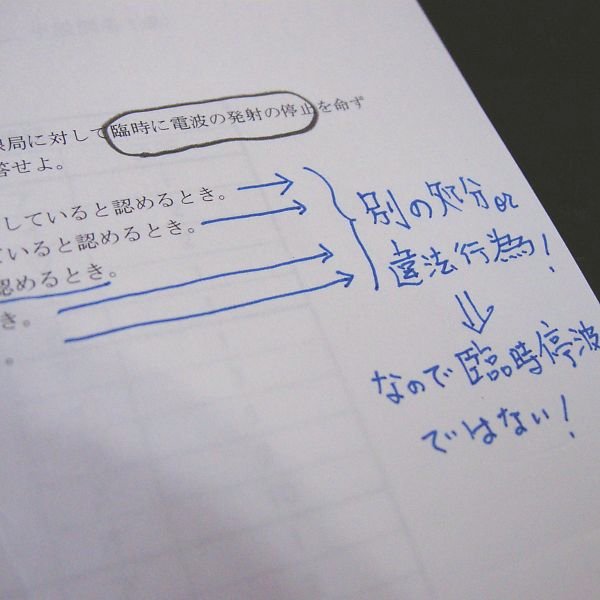 局に対して臨時に電波の発射の停止を命ず
答せよ。
していると認めるとき。
ていると認めるとき。
認めるとき。
き。
。
別の処分or
違法行為!
⇓
なので臨時停波
ではない!